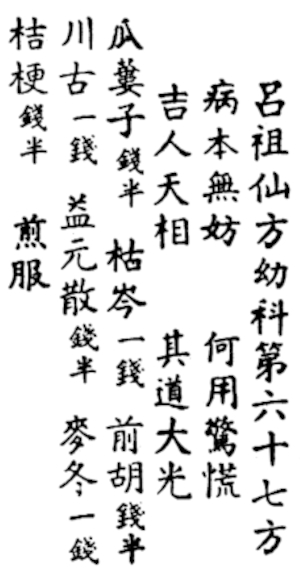 呂祖仙方幼科第六十七方
病本無妨 何用驚慌
吉人天相 其道大光
瓜蔞子錢半 枯岑一錢 前胡錢半
川古一錢 益元散錢半 麥冬一錢
桔梗錢半 煎服